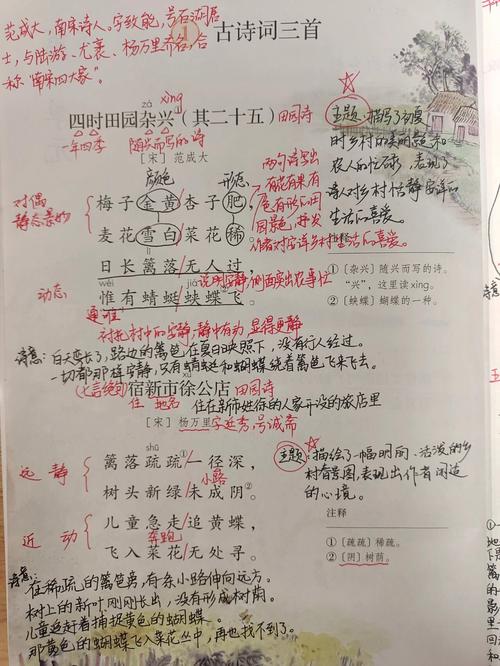 范成大，南宋诗人。字致能，号石湖居
士，与陆游、尤袤、杨万里齐名，合
称"南宋四大家"。
① 古诗词三首
zá xìng
四时田园杂兴（其二十五） 田园诗
一年四季 随兴而写的诗
[宋] 范成大
颜色 形态
对偶
静态景物
梅子金黄杏子肥，
麦花雪白菜花稀。
日长篱落/无人过
说明安静，侧面突出农事忙
动态
wéi jiá
惟有蜻蜓蛱蝶飞。
通"唯"
衬托村中的安静，静中有动，显得更静
两句诗写出
有花有果有
色有形的田
园景色，抒发
作者对安详乡村生活的喜爱。
主题：描写了初夏
时乡村的美丽景象。
农人的忙碌，表现了
诗人对乡村恬静安详的
生活的喜爱。
注释
①〔杂兴〕随兴而写的诗。
"兴"，这里读xìng。
②〔蛱蝶〕蝴蝶的一种。
诗意：白天变长了，路边的篱笆在夏日映照下，没有行人经过。
一切都那样安静，只有蜻蜓和蝴蝶绕着篱笆飞来飞去。
(七言绝句) 宿新市徐公店 田园诗
住 地名 住在新市姓徐的人家开设的旅店里
[宋] 杨万里 字廷秀，号诚斋
shū
远 静
篱落疏疏①/一径深，
小路
树头新绿/未成阴②。
近 动
儿童急走/追黄蝶，
奔跑
飞入菜花/无处寻。
主题：描绘了一幅明丽、活泼的乡
村春景图，表现出作者闲适
的心境。
注释
①〔疏疏〕稀疏。
②〔阴〕树荫。
诗意：在稀疏的篱笆旁，有条小路伸向远方。
树上的新叶刚刚长出，没有形成树荫。
儿童追赶着捕捉黄色的蝴蝶。
那黄色的蝴蝶飞入菜花丛中，再也找不到了。